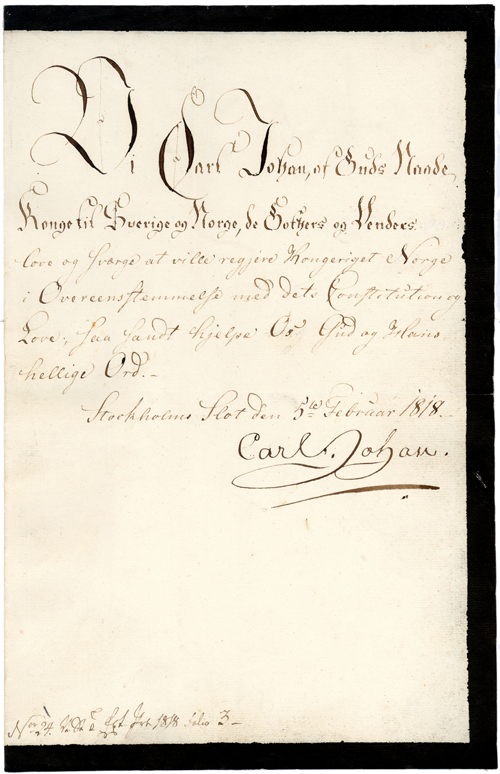 Vi Carl Johan, af Guds Naade,
Konge til Sverige og Norge, de Gothers og Venders
love og sværge at ville regjere Kongeriget Norge
i Overeensstemmelse med dets Constitution og
Love; saa sandt hjelpe Os Gud og Hans
hellige Ord.-
Stockholms Slot den 5te Februar 1818.
Carl Johan.
1818 3-